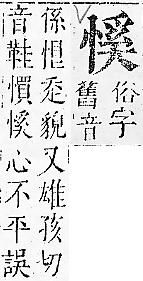 慀
俗字
舊音
係恚貌又雄孩切
音鞋憤慀心不平誤